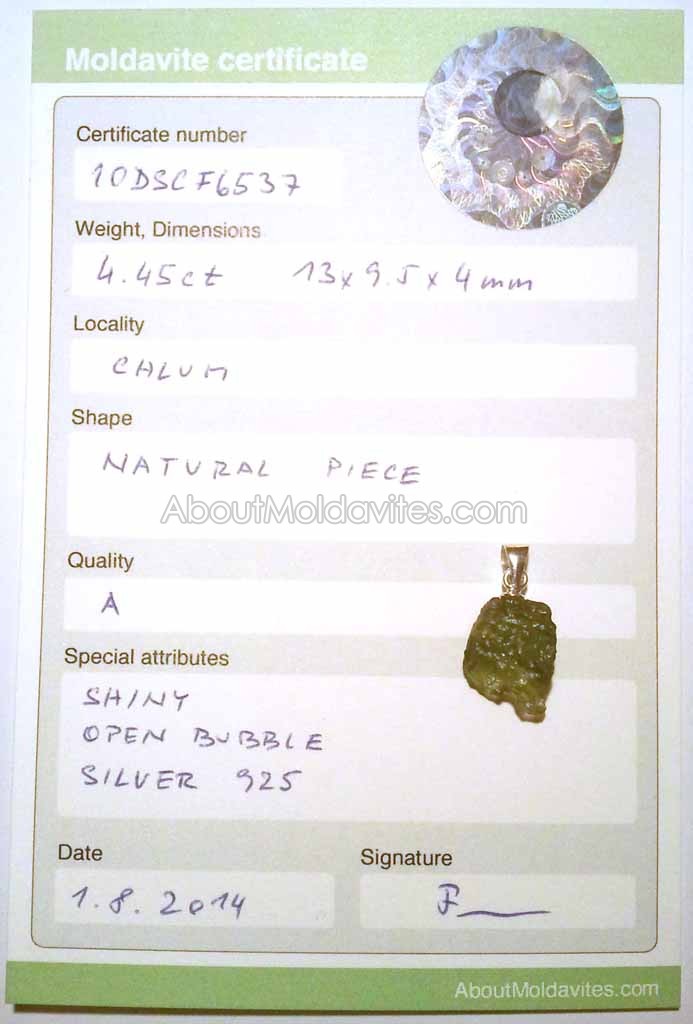 Moldavite certificate
Certificate number
10DSCF6537
Weight, Dimensions
4.45ct 13x9.5x4mm
Locality
CHLUM
Shape
NATURAL PIECE
AboutMoldavites.com
Quality
A
Special attributes
SHINY
OPEN BUBBLE
SILVER 925
Date
Signature
1.8.2014
AboutMoldavites.com